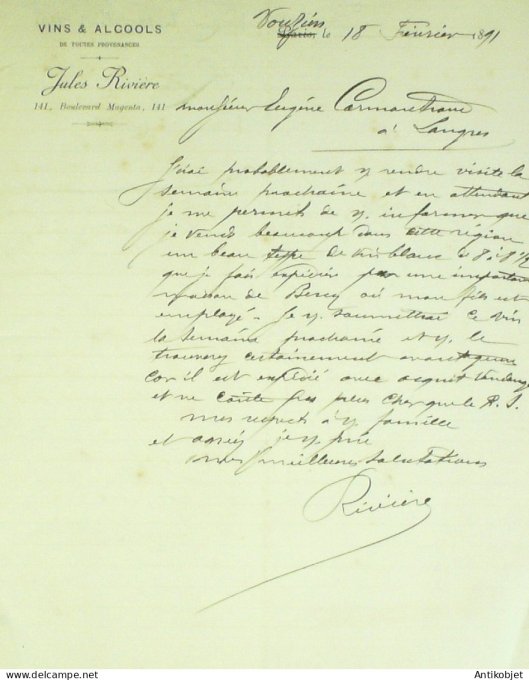 VINS & ALCOOLS
DE TOUTES PROVENANCES
Jules Rivière
141, Boulevard Magenta, 141
Paris, le 18 Février 1891
Monsieur Eugène
à Langres
J'irai probablement v. rendre visite la
semaine prochaine et en attendant
je me permets de v. informer que
je vends beaucoup dans cette région
un beau type de vin blanc à 8 à 8 1/2
que je fais expédier par une importante
maison de Bercy où mon fils est
employé. Je v. soumettrai ce vin
la semaine prochaine et v. le
trouverez certainement avantageux
car il est expédié avec acquit
et ne coûte pas plus cher que le R. S.
mes respects à v. famille
et agréez je v. prie
mes meilleures salutations
Rivière
Antikobjet